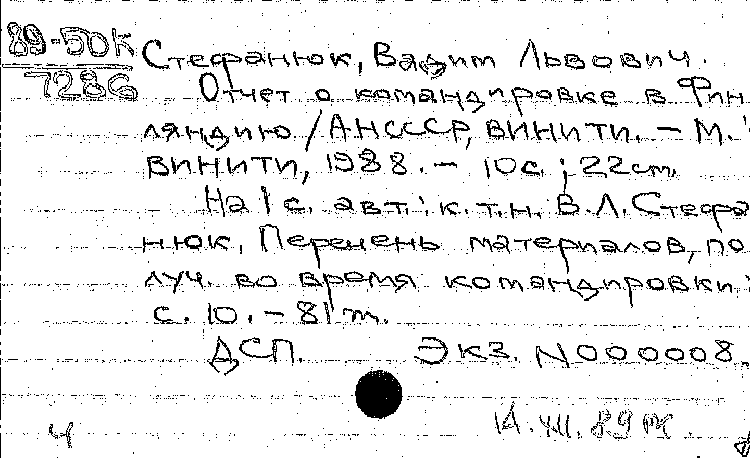 89-50К
7286
Стефанюк, Вадим Львович.
Отчет о командировке в Фин
ляндию / АН СССР, ВИНИТИ. – М. :
ВИНИТИ, 1988. – 10 с. ; 22 см.
На 1 с. авт.: к.т.н. В.Л. Стефа
нюк. Перечень материалов, по
луч. во время командировки:
с. 10. – 81 т.
ДСП. Экз. N000008.
4 14.XII.89